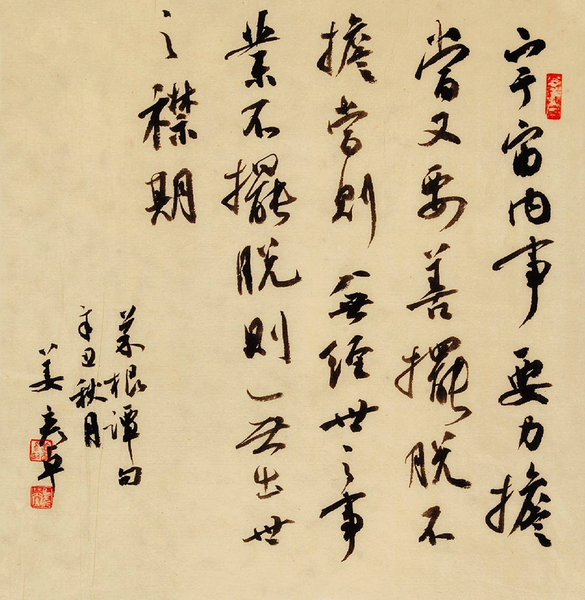 宇宙内事要力擔
當又要善擺脫不
擔當則無經世之事
業不擺脫則無出世
之襟期
菜根譚句
辛丑秋月
姜夷卓